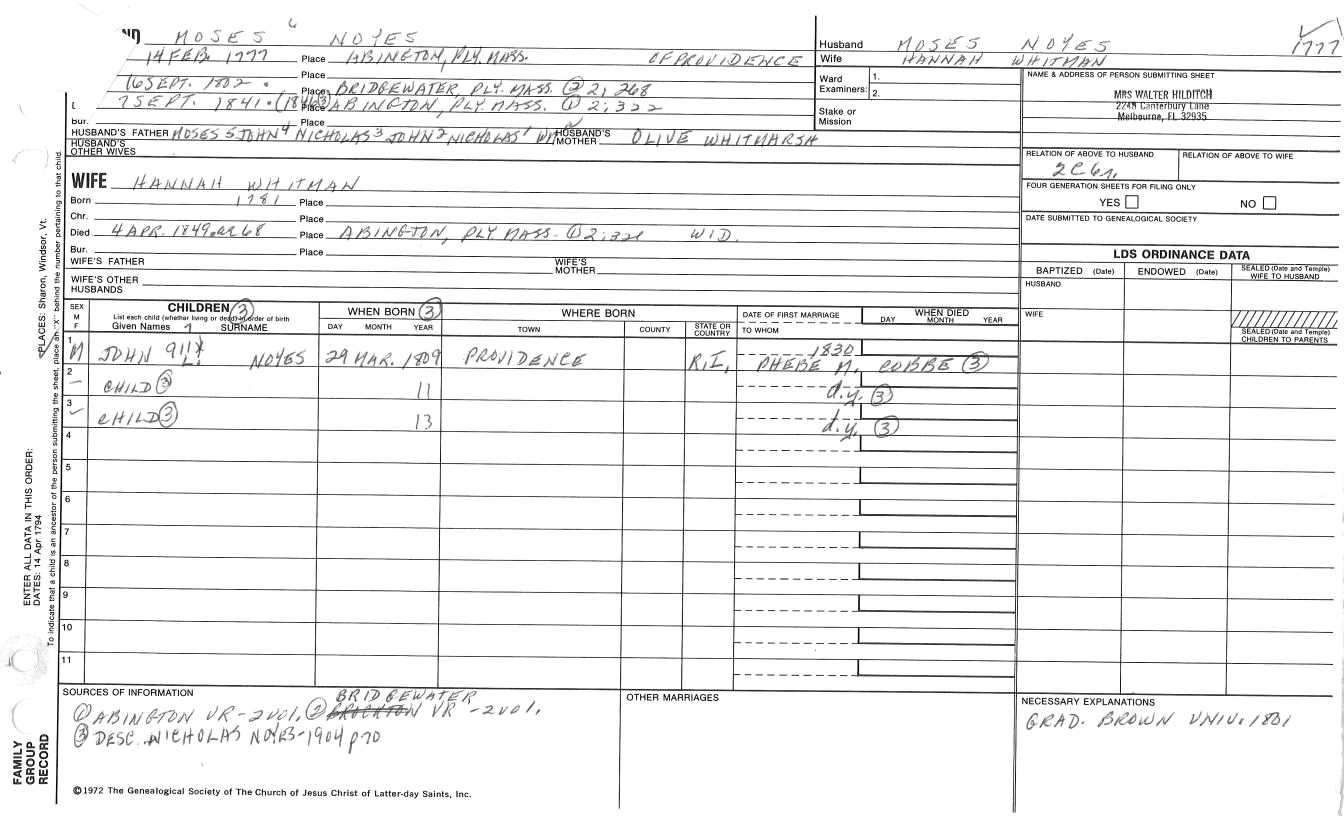 ND MOSES 6 NOYES
14 FEB. 1777 Place ABINGTON, PLY. MASS. OF PROVIDENCE
Place
16 SEPT. 1802. Place BRIDGEWATER, PLY. MASS. ② 2; 268
7 SEPT. 1841. (1846③ Place ABINGTON, PLY. MASS. ① 2; 322
Bur. Place
HUSBAND'S FATHER MOSES 5 JOHN 4 NICHOLAS 3 JOHN 2 NICHOLAS 1 HUSBAND'S MOTHER OLIVE WHITMARSH
HUSBAND'S OTHER WIVES
WIFE HANNAH WHITMAN
Born 1781 Place
Chr. Place
Died 4 APR. 1849. ae 68 Place ABINGTON, PLY. MASS. ① 2; 322 WID.
Bur. Place
WIFE'S FATHER WIFE'S MOTHER
WIFE'S OTHER HUSBANDS
Husband MOSES NOYES 1777
Wife HANNAH WHITMAN
Ward Examiners: 1.
2.
Stake or Mission
NAME & ADDRESS OF PERSON SUBMITTING SHEET
MRS WALTER HILDITCH
2248 Canterbury Lane
Melbourne, FL 32935
RELATION OF ABOVE TO HUSBAND RELATION OF ABOVE TO WIFE
2C6r.
FOUR GENERATION SHEETS FOR FILING ONLY
YES NO
DATE SUBMITTED TO GENEALOGICAL SOCIETY
LDS ORDINANCE DATA
BAPTIZED (Date) ENDOWED (Date) SEALED (Date and Temple) WIFE TO HUSBAND
HUSBAND
WIFE
SEALED (Date and Temple) CHILDREN TO PARENTS
SEX M F CHILDREN ③ WHEN BORN ③ WHERE BORN DATE OF FIRST MARRIAGE WHEN DIED
List each child (whether living or dead) in order of birth
Given Names 7 SURNAME DAY MONTH YEAR TOWN COUNTY STATE OR COUNTRY TO WHOM DAY MONTH YEAR
1 M JOHN NOYES 29 MAR. 1809 PROVIDENCE R.I. 1830
PHEBE M. COBBE ③
2 – CHILD ③ 11 d.y. ③
3 CHILD ③ 13 d.y. ③
4
5
6
7
8
9
10
11
SOURCES OF INFORMATION
① ABINGTON VR-2 VOl. ② BROCKTON BRIDGEWATER VR -2 VOl.
③ DESC. NICHOLAS NOYES-1904 p 70
OTHER MARRIAGES
NECESSARY EXPLANATIONS
GRAD. BROWN UNIV. 1801
©1972 The Genealogical Society of The Church of Jesus Christ of Latter-day Saints, Inc.
FAMILY GROUP RECORD
ENTER ALL DATA IN THIS ORDER:
DATES: 14 Apr 1794
PLACES: Sharon, Windsor, Vt.
To indicate that a child is an ancestor of the person submitting the sheet, place an "X" behind the number pertaining to that child.